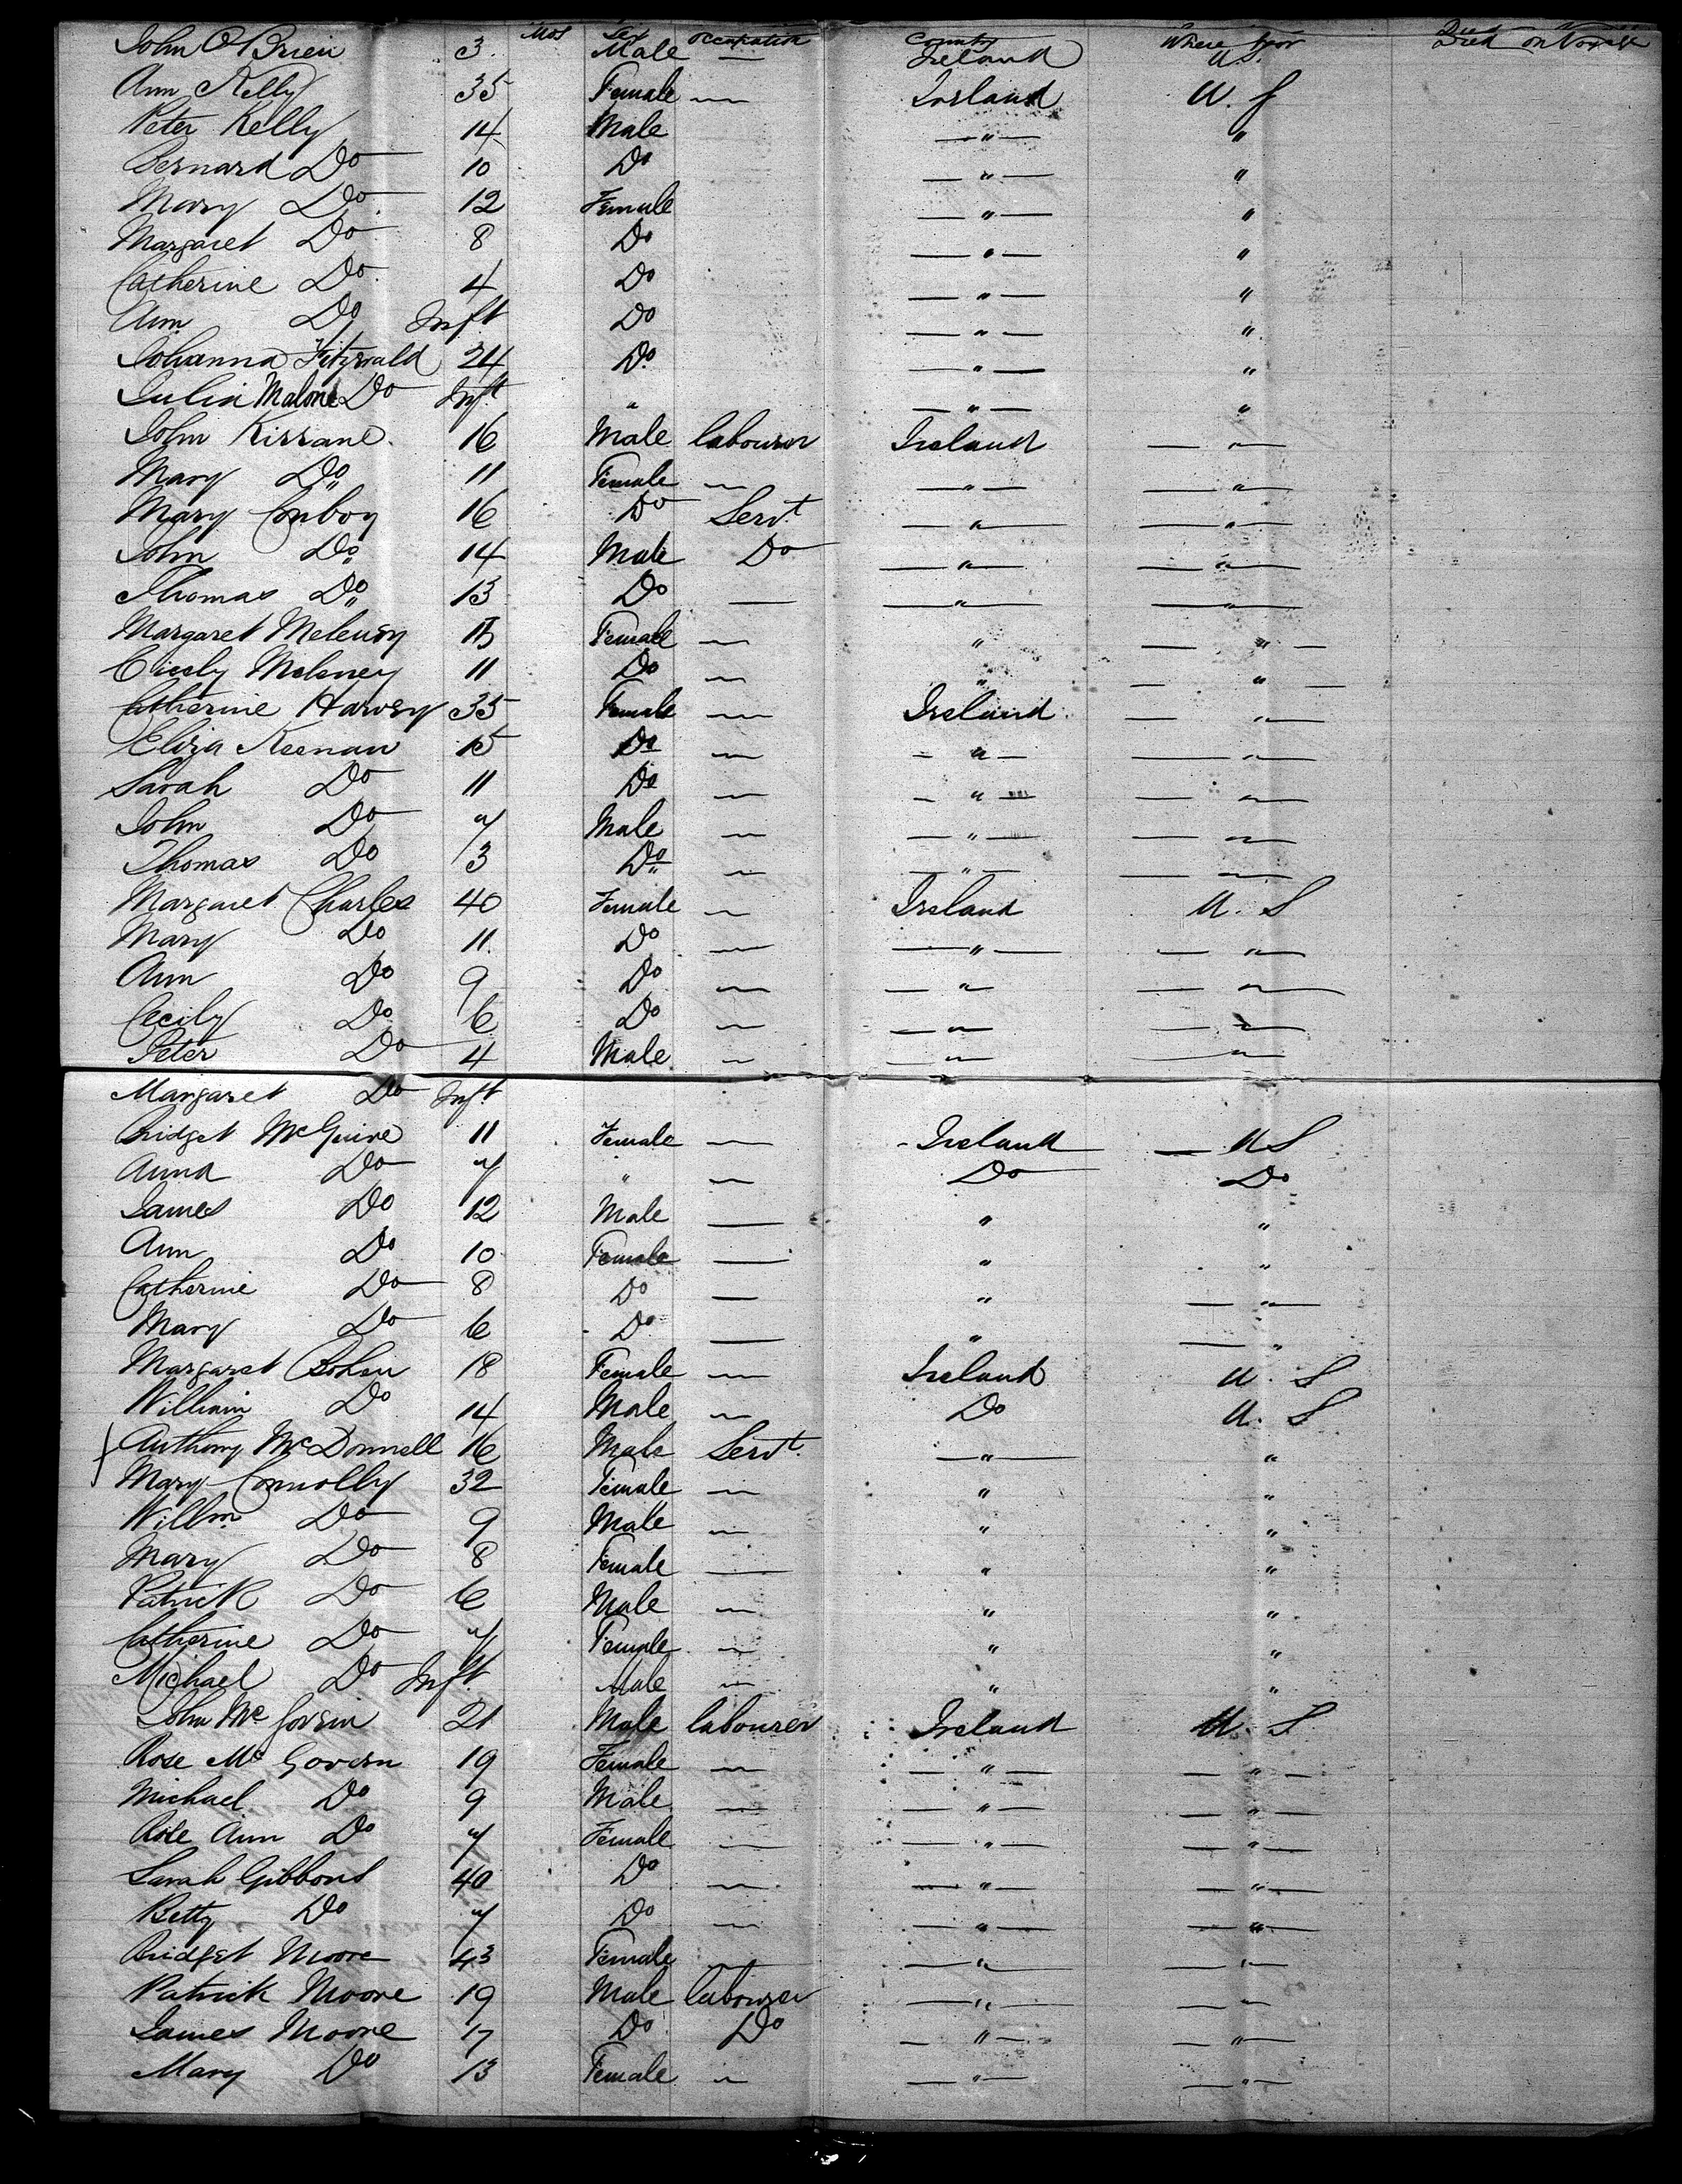 Mos Sex Occupation Country Where for Died on Voyage
John O'Brien 3 Male — Ireland U.S.
Ann Kelly 35 Female — Ireland U. S
Peter Kelly 14 Male — " — "
Bernard Do 10 Do — " — "
Mary Do 12 Female — " — "
Margaret Do 8 Do — " — "
Catherine Do 4 Do — " — "
Ann Do Inft Do — " — "
Johanna Fitzgerald 24 Do — " — "
Julia Malone Do Inft " — " — "
John Kirrane 16 Male labourer Ireland — " —
Mary Do 11 Female — — " — — " —
Mary Conboy 16 Do Servt — " — — " —
John Do 14 Male Do — " — — " —
Thomas Do 13 Do — — " — — " —
Margaret Melensy 15 Female — " — " —
Cicely Meleney 11 Do — " — " —
Catherine Harvey 35 Female — Ireland — " —
Eliza Keenan 15 Do — — " — — " —
Sarah Do 11 Do — — " — — " —
John Do 7 Male — — " — — " —
Thomas Do 3 Do — — " — — " —
Margaret Charles 40 Female — Ireland U. S
Mary Do 11 Do — — " — — " —
Ann Do 9 Do — — " — — " —
Cecily Do 6 Do — — " — — " —
Peter Do 4 Male — — " — — " —
Margaret Do Inft
Bridget McGuire 11 Female — Ireland — U S
Anna Do 7 " — Do Do
James Do 12 Male — " "
Ann Do 10 Female — " "
Catherine Do 8 Do — " — " —
Mary Do 6 Do — " — "
Margaret Bohen 18 Female — Ireland U. S
William Do 14 Male — Do U. S
Anthony McDonnell 16 Male Servt. — " — "
Mary Connolly 32 Female — " "
Willm Do 9 Male — " "
Mary Do 8 Female — " "
Patrick Do 6 Male — " "
Catherine Do 4 Female — " "
Michael Do Inft. Male — " "
John McGovern 21 Male labourer Ireland U. S
Rose McGovern 19 Female — — " — — " —
Michael Do 9 Male — — " — — " —
Rose Ann Do 7 Female — — " — — " —
Sarah Gibbons 40 Do — — " — — " —
Betty Do 7 Do — — " — — " —
Bridget Moore 43 Female — — " — — " —
Patrick Moore 19 Male labourer — " — — " —
James Moore 17 Do Do — " — — " —
Mary Do 13 Female — — " — — " —